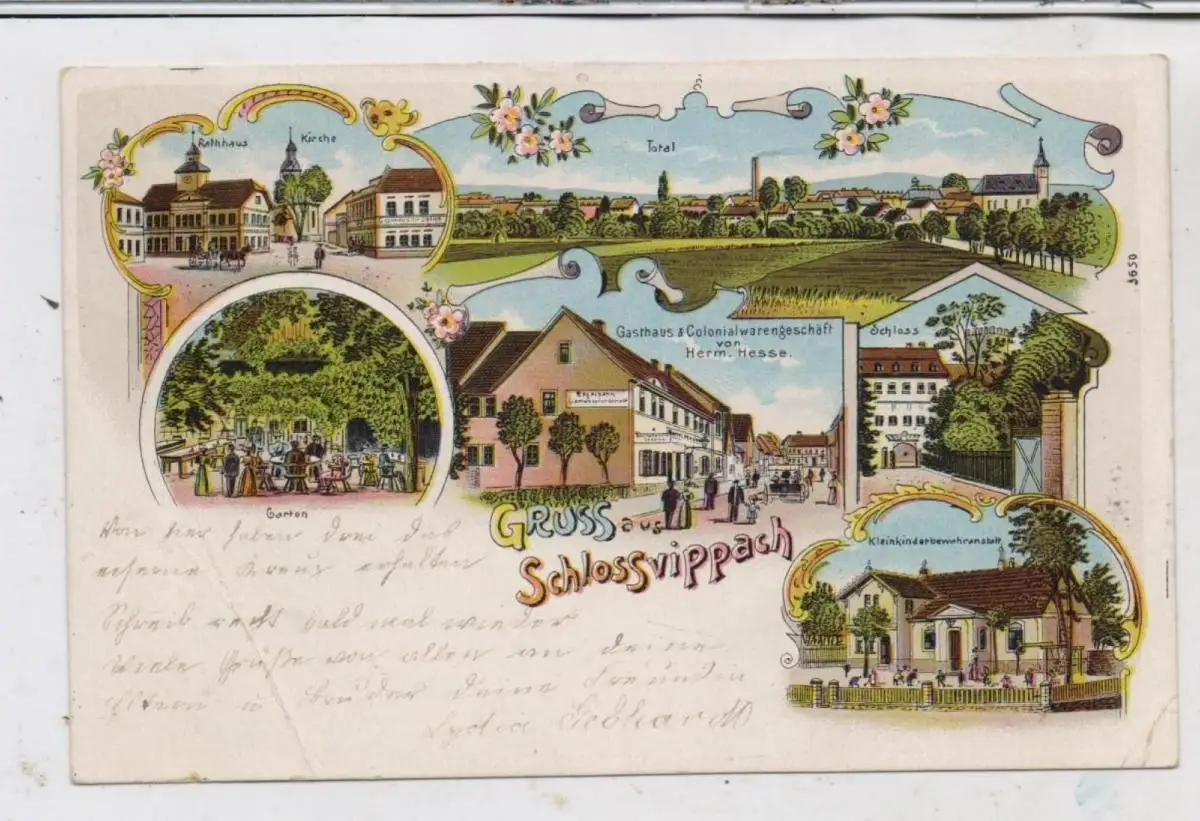 Rathhaus
Kirche
Total
3650
Gasthaus & Colonialwarengeschäft
von
Herm. Hesse.
Schloss
Garten
GRUSS aus
Schlossvippach
Kleinkinderbewahranstalt
Von hier haben drei das
eiserne Kreuz erhalten
Schreib recht bald mal wieder
Viele Grüße von allen an deine
Eltern u Brüder deine Freundin
Lydia Gebhardt